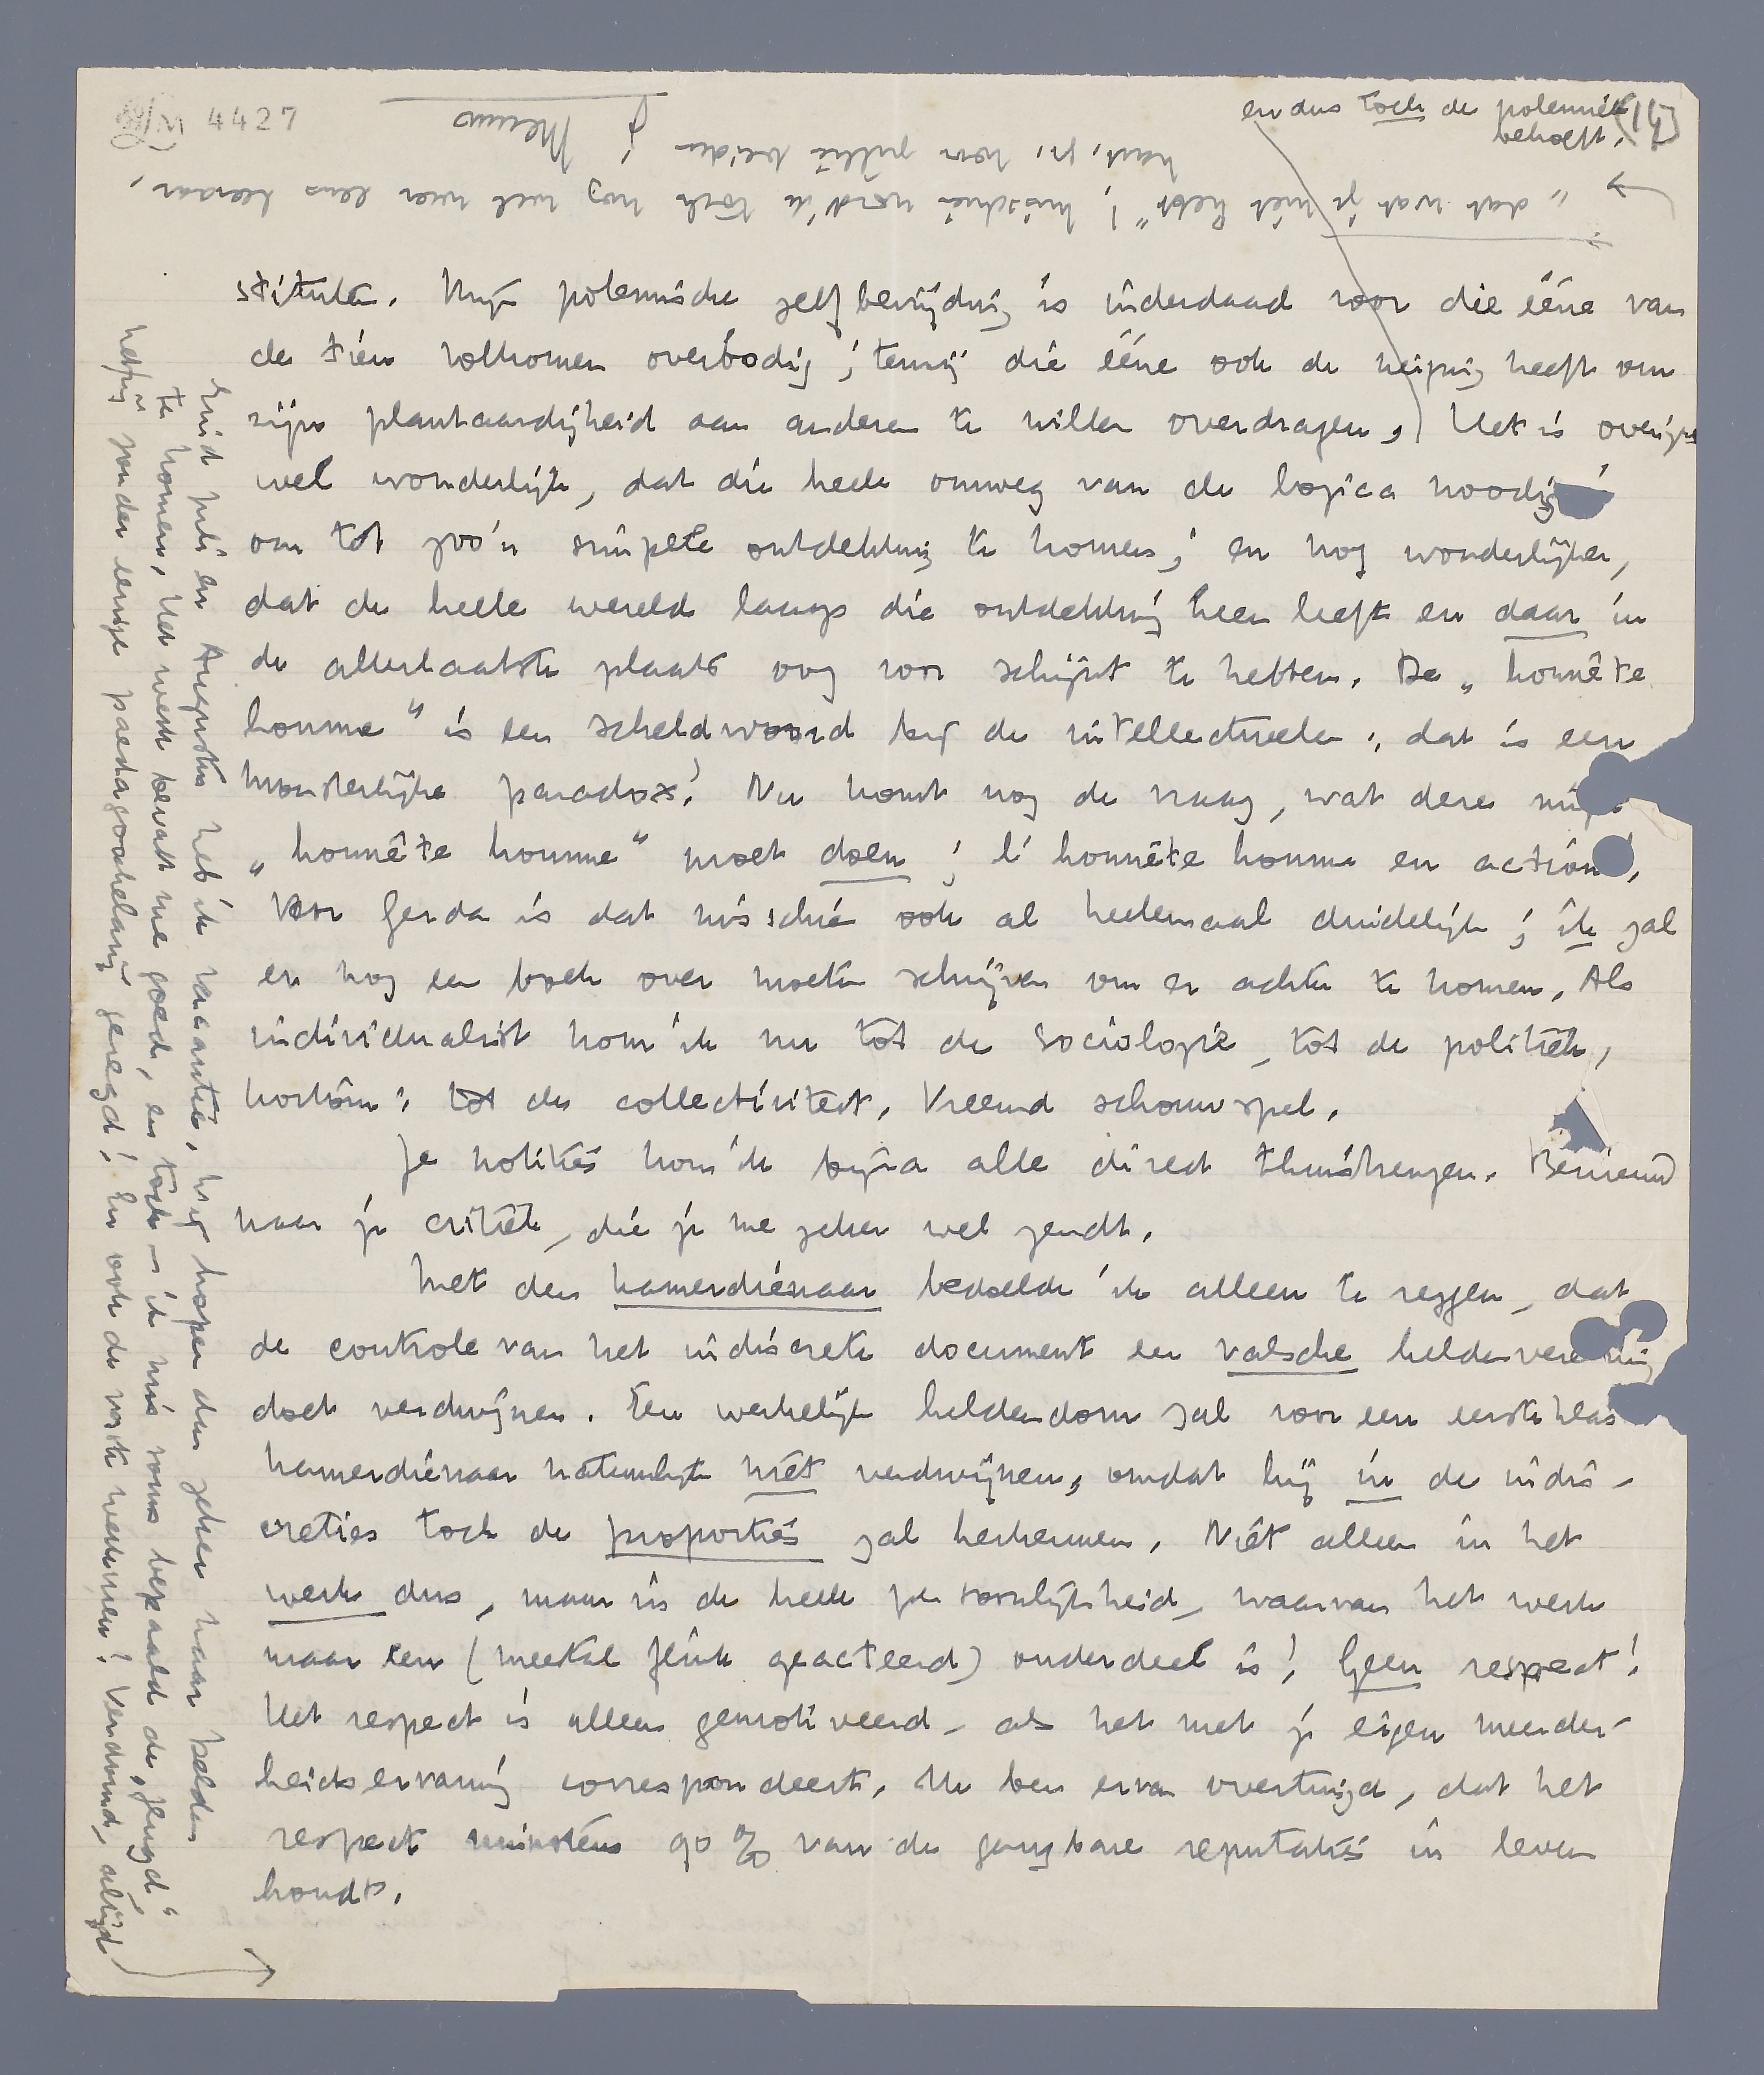 4427
en dus toch de polemiek
behoeft.
stituten. Mijn polemische zelfbevrijding is inderdaad voor die ééne van
de tien volkomen overbodig; tenzij die ééne ook de neiging heeft om
zijn plantaardigheid aan anderen te willen overdragen.) Het is overigens
wel wonderlijk, dat die heele omweg van de logica noodig
om tot zoo'n simpele ontdekking te komen; en nog wonderlijker,
dat de heele wereld langs die ontdekking heen leeft en daar in
de allerlaatste plaats oog voor schijnt te hebben. De „honnête
homme" is een scheldwoord bij de intellectueelen; dat is een
monsterlijke paradox! Nu komt nog de vraag, wat deze
„honnête homme" moet doen; l'honnête homme en action.
Voor Gerda is dat misschien ook al heelemaal duidelijk; ik zal
er nog een boek over moeten schrijven om er achter te komen. Als
individualist kom ik nu tot de sociologie, tot de politiek,
kortom: tot de collectiviteit. Vreemd schouwspel.
Je notities kon ik bijna alle direct thuisbrengen. Benieuwd
naar je critiek, die je me zeker wel zendt.
Met den kamerdienaar bedoelde ik alleen te zeggen, dat
de controle van het indiscrete document een valsche heldenvereering
doet verdwijnen. Een werkelijk heldendom zal voor een eersteklas
kamerdienaar natuurlijk niet verdwijnen, omdat hij in de indis-
creties toch de proporties zal herkennen. Niet alleen in het
werk dus, maar in de heele persoonlijkheid, waarvan het werk
maar een (meestal flink geacteerd) onderdeel is! Geen respect!
Het respect is alleen gemotiveerd, als het met je eigen meerder-
heidservaring correspondeert. Ik ben ervan overtuigd, dat het
respect minstens 90 % van de gangbare reputaties in leven
houdt.
Eind Juli en Augustus heb ik vacantie, wij hopen dus zeker naar Gelder
te komen. Het werk bevalt me goed, en toch – ik mis soms bepaald de „jeugd"
helpen zonder eenige paedagogische genegd! En ook de vaste werkuren! Verdomd, altijd
„dat wat je niet hebt"! Misschien word ik toch nog wel weer eens leeraar,
hart. gr. voor jullie beiden
je Menno